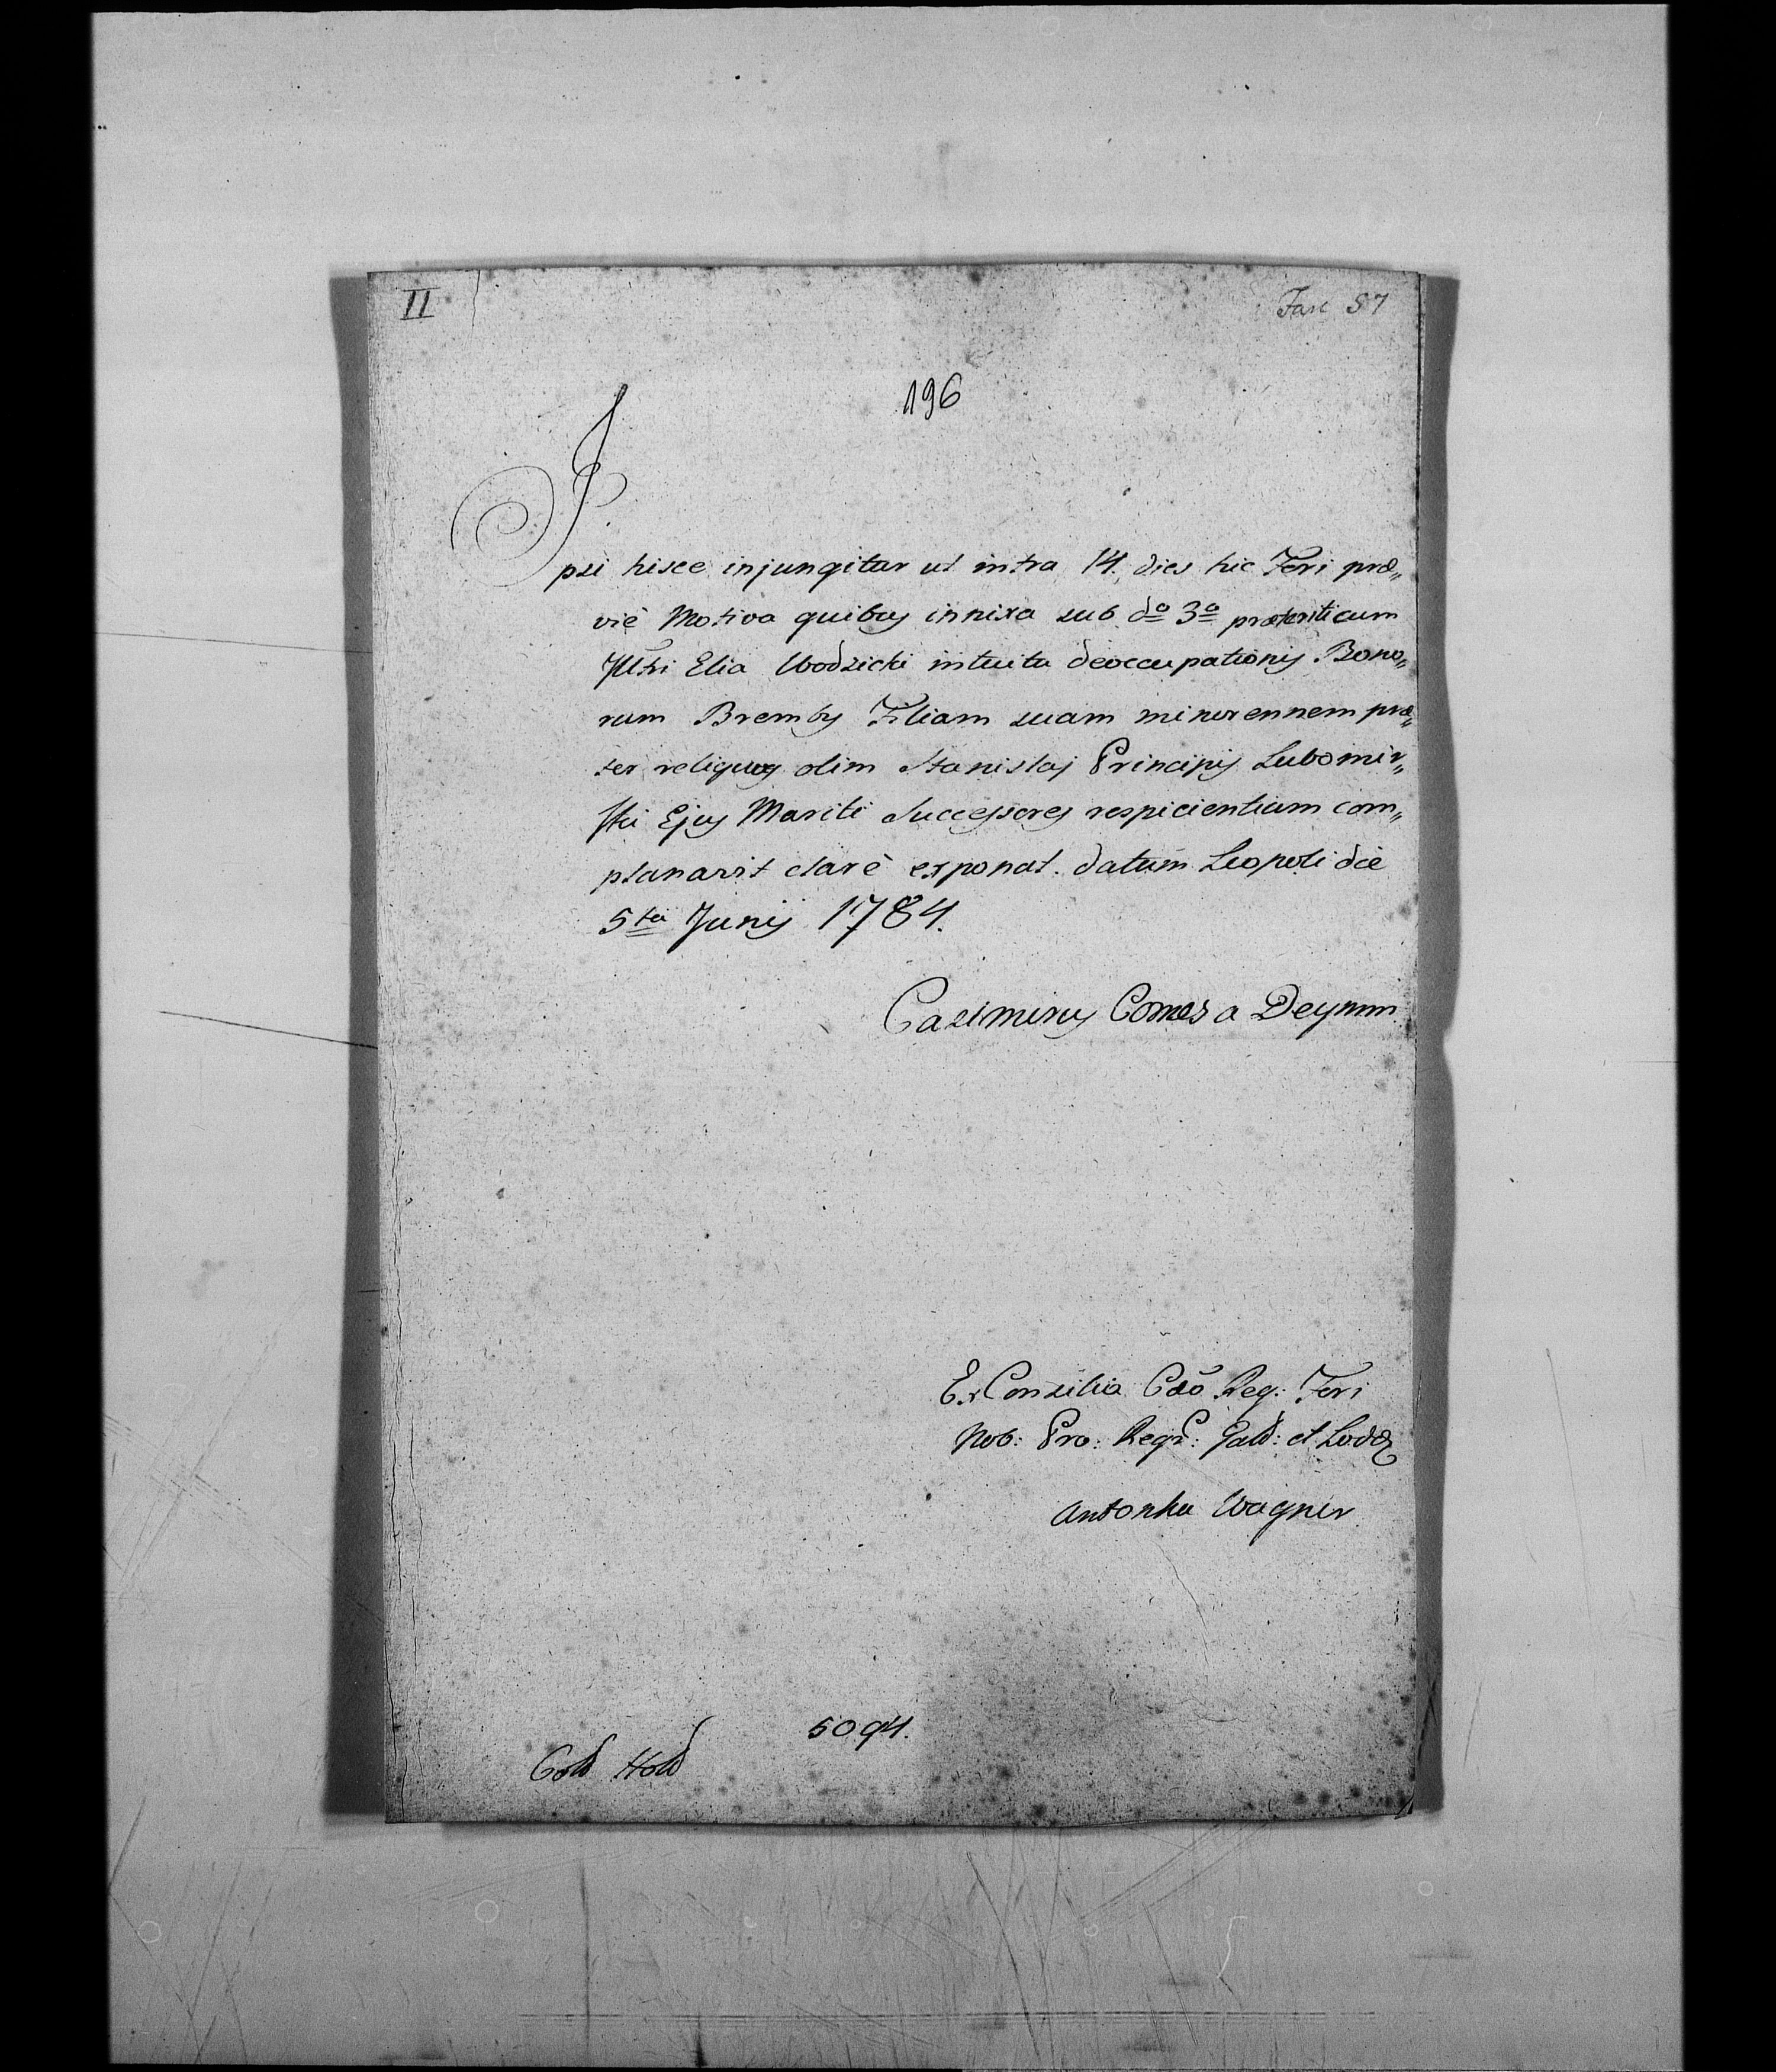 II
Fasc 87
196
Ipsi hisce injungitur ut intra 14. dies hic Fori præ„
viè Motiva quibus innixa sub d<sup>o</sup> 3<sup>a</sup>
Illŭstri Elia Wodzicki intuitu deoccupationis Bono„
rum Bremby Filiam suam minorennem præ„
ter reliquos olim Stanislai Principis Lubomir„
ski Ejus Mariti Successores respicientium com„
planavit clarè exponat. datum Leopoli die
5<sup>ta</sup> Junij 1784.
Casimirus Comes a Deymm
Ex Consilio Cæō Reg: Fori
Nob: Pro: Regn: Gali: et Lodo
Wagner
5094.